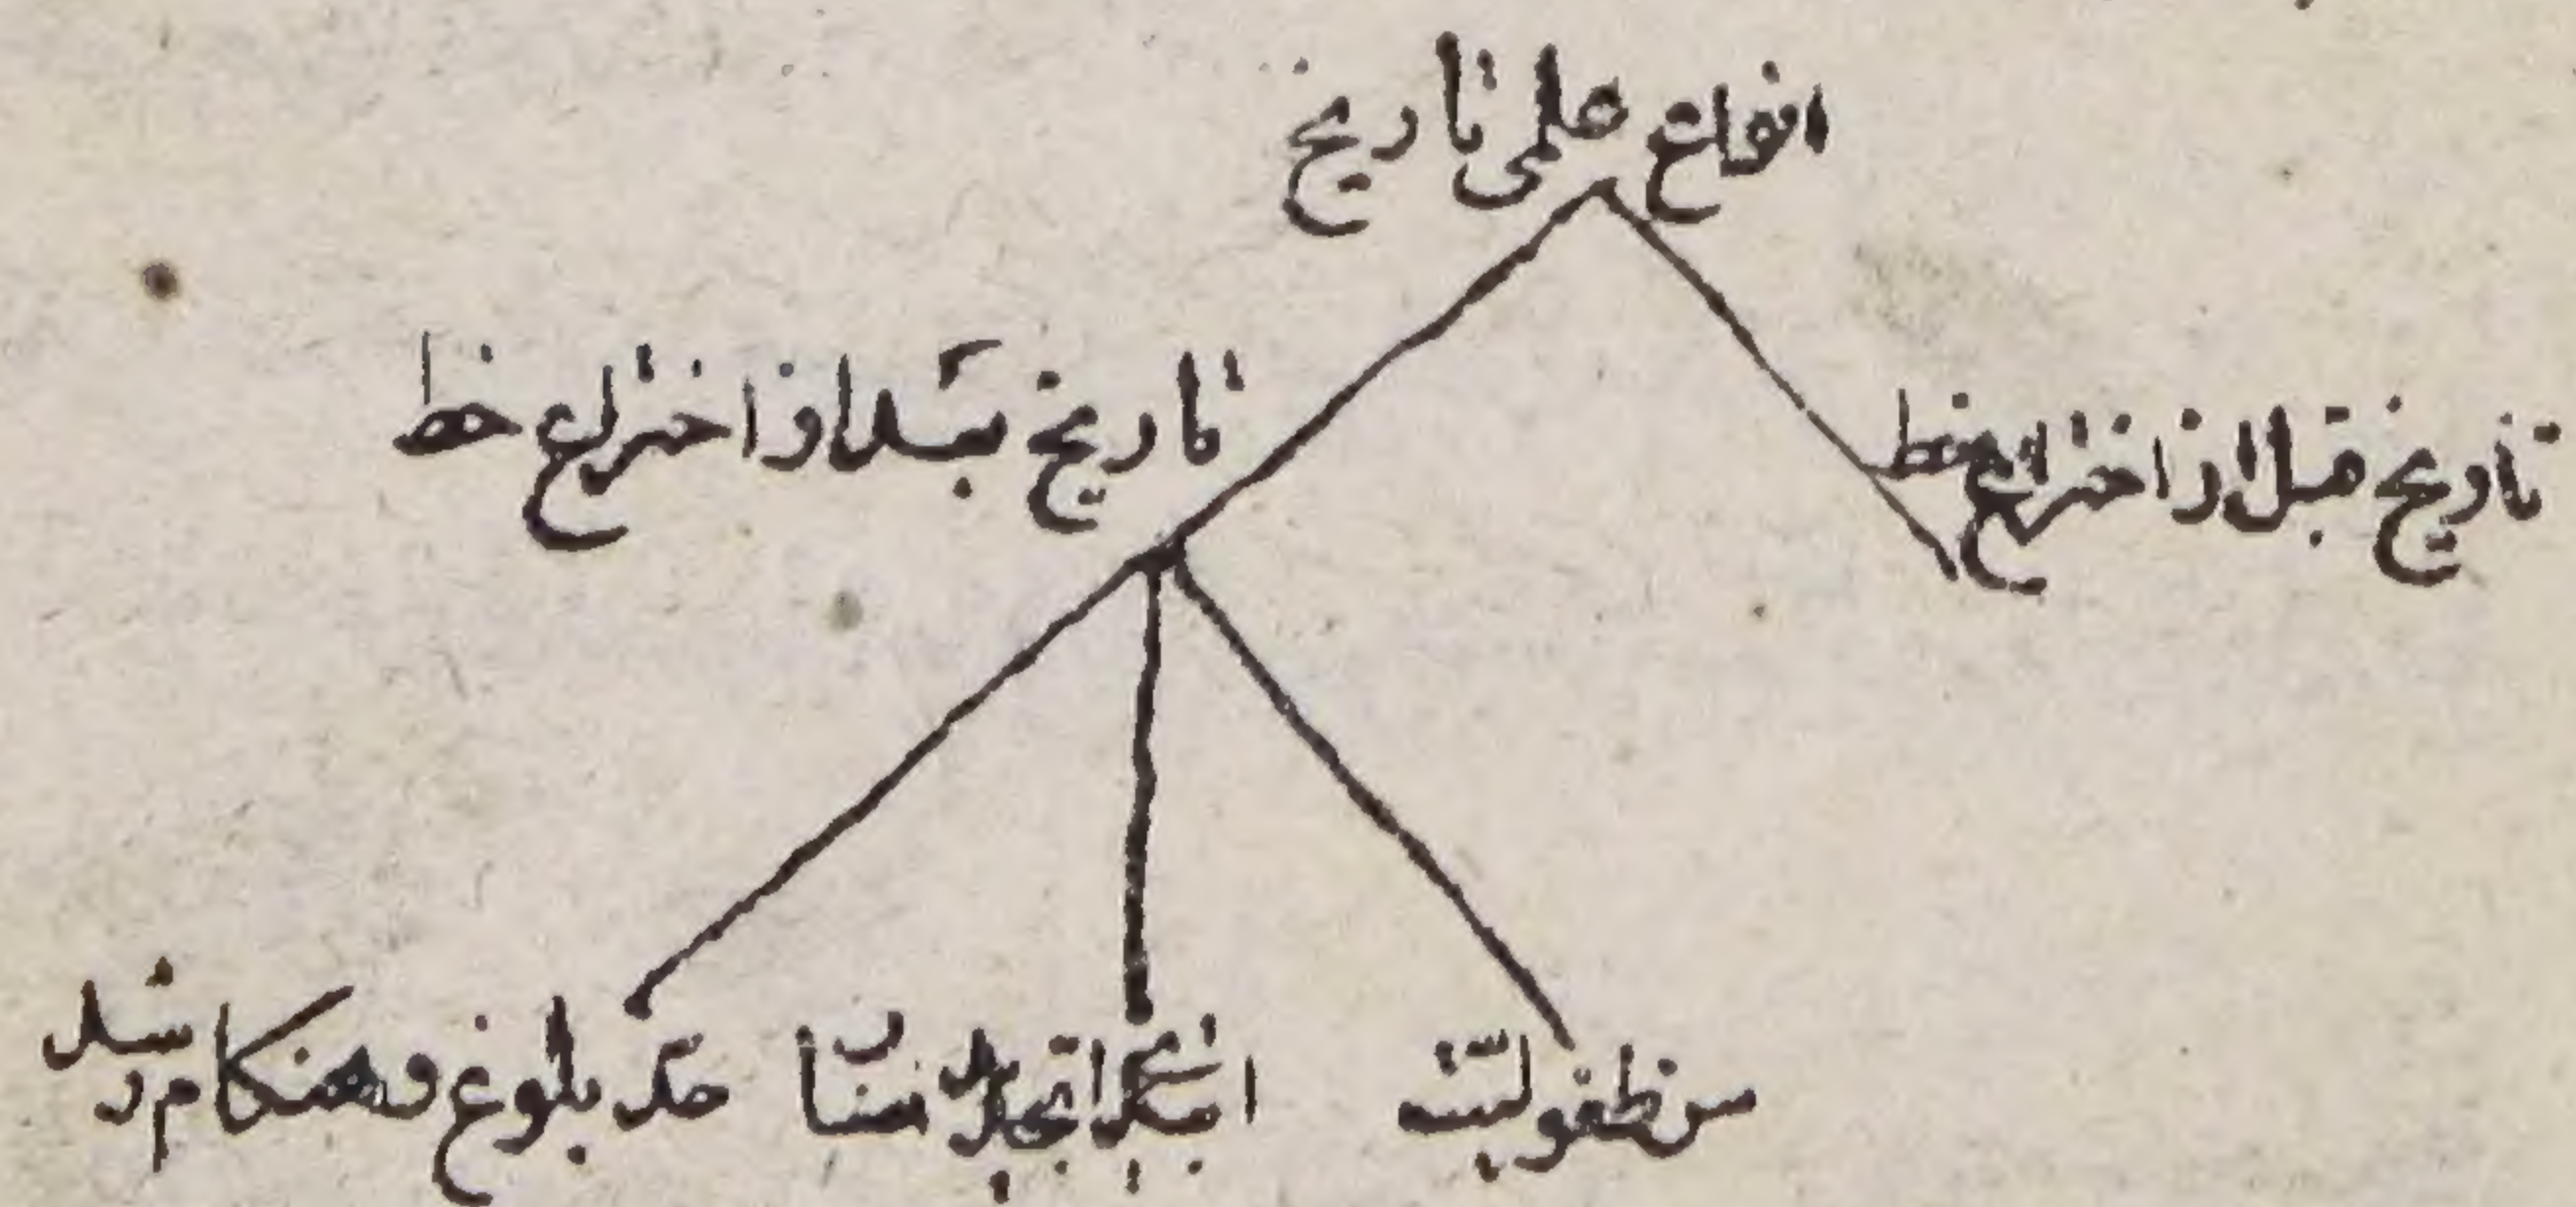 انواع علمی تاریخ
تاریخ قبل از اختراع خط
تاریخ بعد از اختراع خط
سن طفولیّت
حدّ بلوغ و هنکام رشد